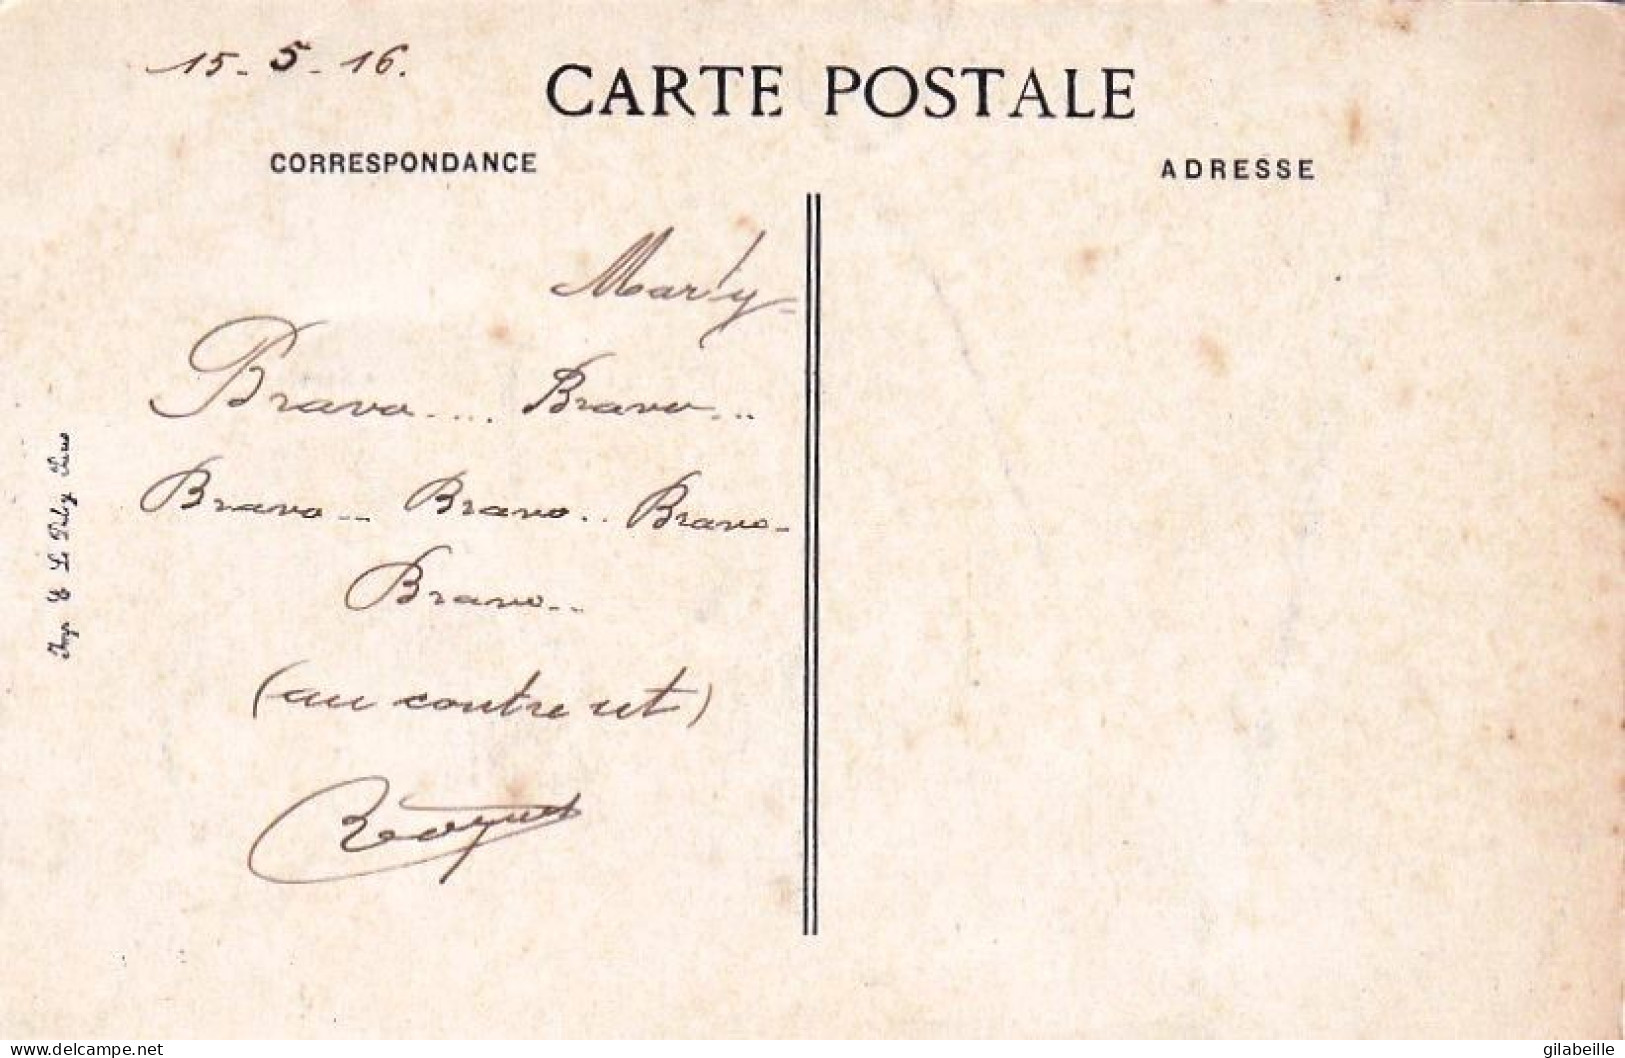 15-5-16.
CARTE POSTALE
CORRESPONDANCE
ADRESSE
Marly
Bravo.... Bravo...
Bravo... Bravo.. Bravo-
Bravo...
(au contre ut)
Imp. E. Le Deley Paris
www.delcampe.net
gilabeille